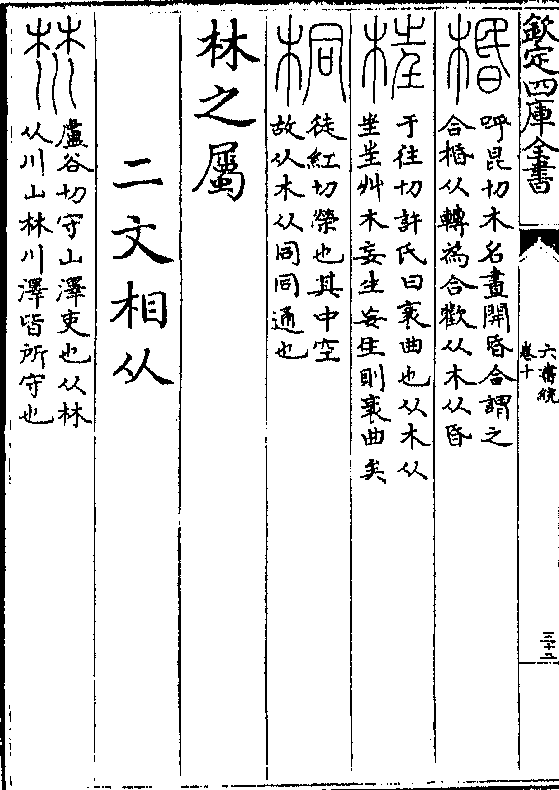 欽定四庫全書
六書統
卷十
三十二
呼昆切木名晝開昏合謂之
合㨹从轉為合歡从木从昏
于往切許氏曰衺曲也从木从
㞷㞷艸木妄生妄生則衺曲矣
徒紅切榮也其中空
故从木从同同通也
林之屬
二文相从
盧谷切守山澤吏也从林
从川山林川澤皆所守也